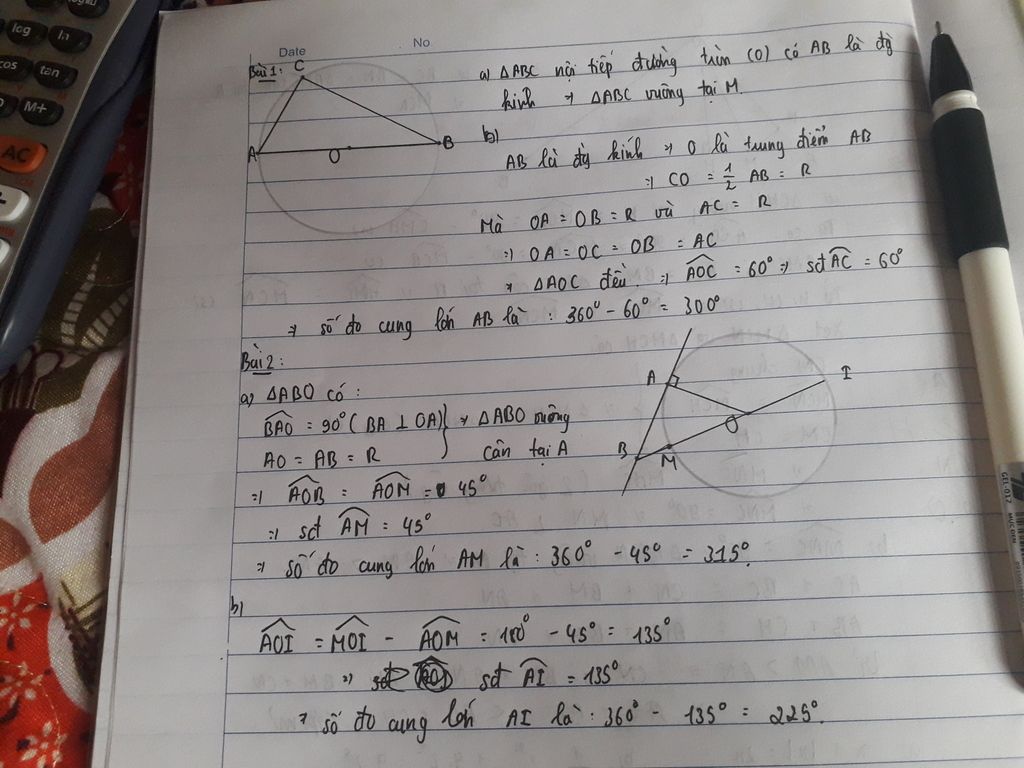 log
ln
cos
tan
M+
AC
Date
No
Bài 1:
C
A
O
B
a) ΔABC nội tiếp đường tròn (O) có AB là đg
kính → ΔABC vuông tại M.
b)
AB là đg kính → O là trung điểm AB
⇒ CO = 1/2 AB = R
Mà OA = OB = R và AC = R
⇒ OA = OC = OB = AC
→ ΔAOC đều. ⇒ AOC = 60° ⇒ sđ AC = 60°
→ số đo cung lớn AB là : 360° - 60° = 300°
Bài 2:
a) ΔABO có :
BAO = 90° ( BA ⊥ OA)
AO = AB = R
} → ΔABO vuông
cân tại A
A
I
O
B
M
⇒ AOB = AOM = 45°
⇒ sđ AM = 45°
⇒ số đo cung lớn AM là : 360° - 45° = 315°.
b)
AOI = MOI - AOM = 180° - 45° = 135°
⇒ sđ AI = 135°
→ số đo cung lớn AI là : 360° - 135° = 225°.